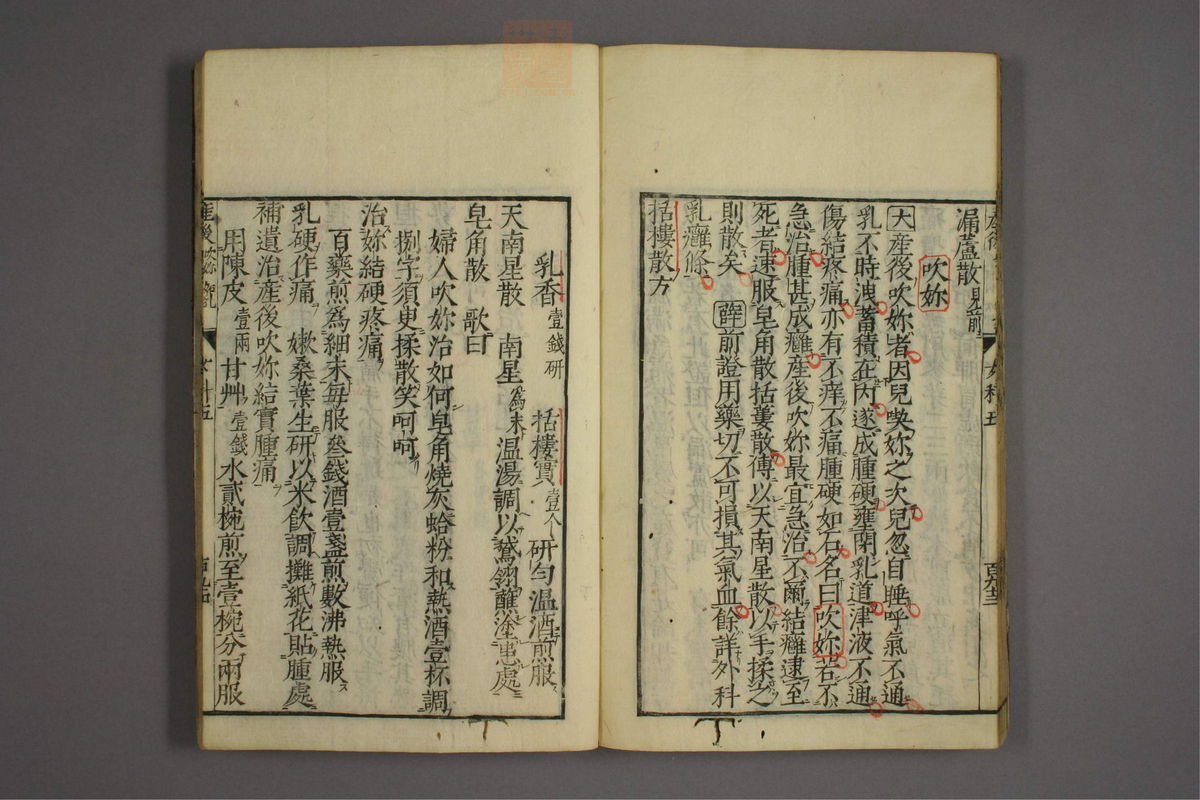 漏蘆散見前
吹妳
大產後吹妳者因兒喫妳之次兒忽自睡呼氣不通
乳不時洩蓄積在內遂成腫硬壅閉乳道津液不通
傷結疼痛亦有不痒不痛腫硬如石名曰吹妳若不
急治腫甚成癰產後吹妳最宜急治不爾結癰逮至
死者速服皂角散括蔞散傅以天南星散以手揉之
則散矣 薛前證用藥切不可損其氣血餘詳外科
乳癰條
括樓散方
女科五
乳香壹錢研 括樓實壹个 研勻溫酒煎服
天南星散 南星為末溫湯調以鵞翎蘸塗患處
皂角散 歌曰
婦人吹妳治如何皂角燒灰蛤粉和熱酒壹杯調
捌字須臾揉散笑呵呵
治妳結硬疼痛
百藥煎為細末每服叁錢酒壹盞煎數沸熱服
乳硬作痛 嫩桑葉生研以米飲調攤紙花貼腫處
補遺治產後吹妳結實腫痛
用陳皮壹兩甘艸壹錢水貳椀煎至壹椀分兩服
產後吹妳